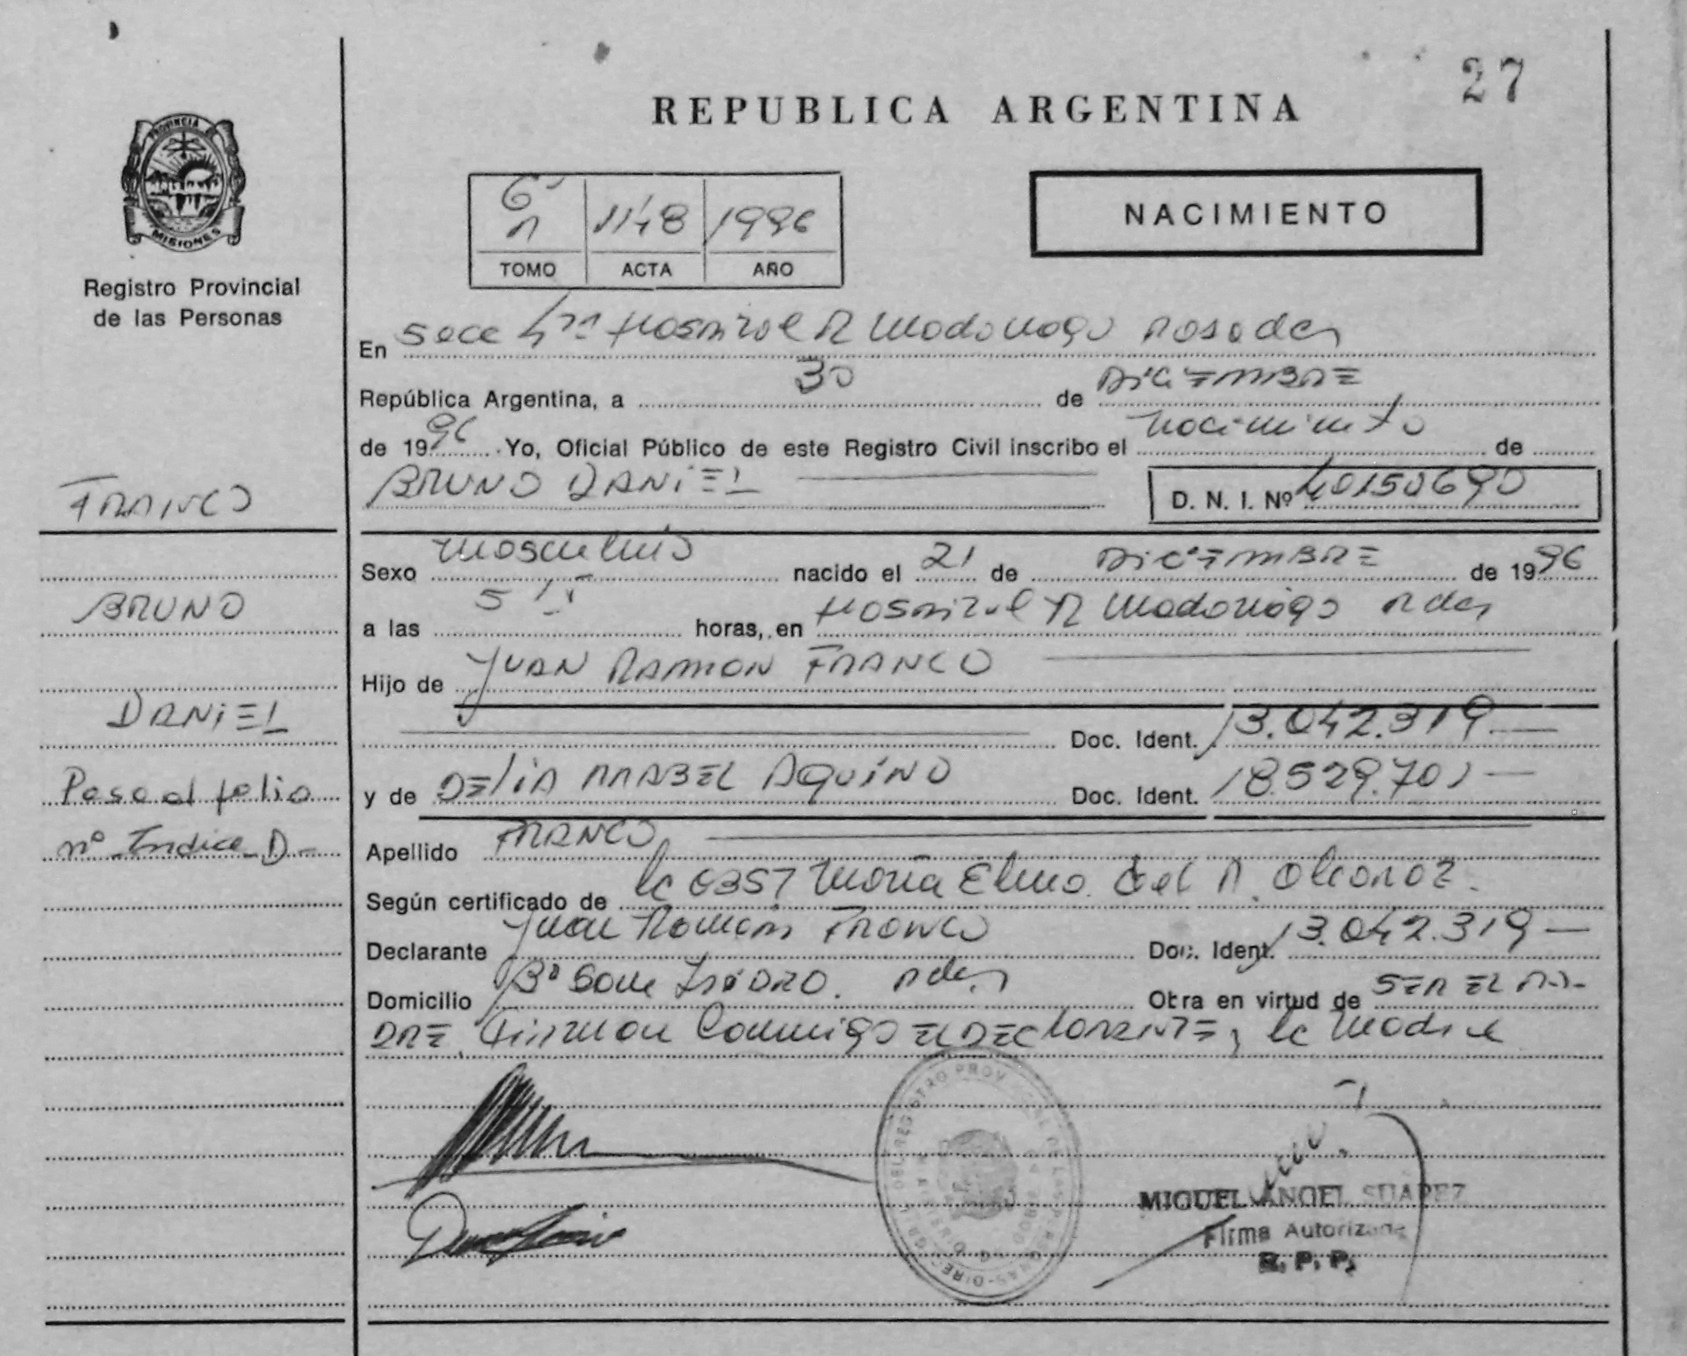 27
REPUBLICA ARGENTINA
PROVINCIA DE
MISIONES
Registro Provincial
de las Personas
NACIMIENTO
1148 1996
TOMO ACTA AÑO
En Secc Hospital R Madariaga Posadas
República Argentina, a 30 de DICIEMBRE
de 1996 Yo, Oficial Público de este Registro Civil inscribo el nacimiento de
BRUNO DANIEL D. N. I. Nº 40150690
FRANCO
BRUNO
DANIEL
Paso al folio
nº Indice D-
Sexo masculino nacido el 21 de DICIEMBRE de 1996
a las horas, en Hospital R Madariaga Pdas
Hijo de JUAN RAMON FRANCO
Doc. Ident. 13.042.319
y de DELIA MABEL AQUINO Doc. Ident. 18.529.701
Apellido FRANCO
Según certificado de la 0357 María Elena del
Declarante Juan Ramón FRANCO Doc. Ident. 13.042.319
Domicilio Bº San ISIDRO. Pdas Obra en virtud de SER EL PA-
DRE. Firman Conmigo EL DECLARANTE y la Madre
MIGUEL ANGEL SUAREZ
Firma Autorizada
R. P. P.